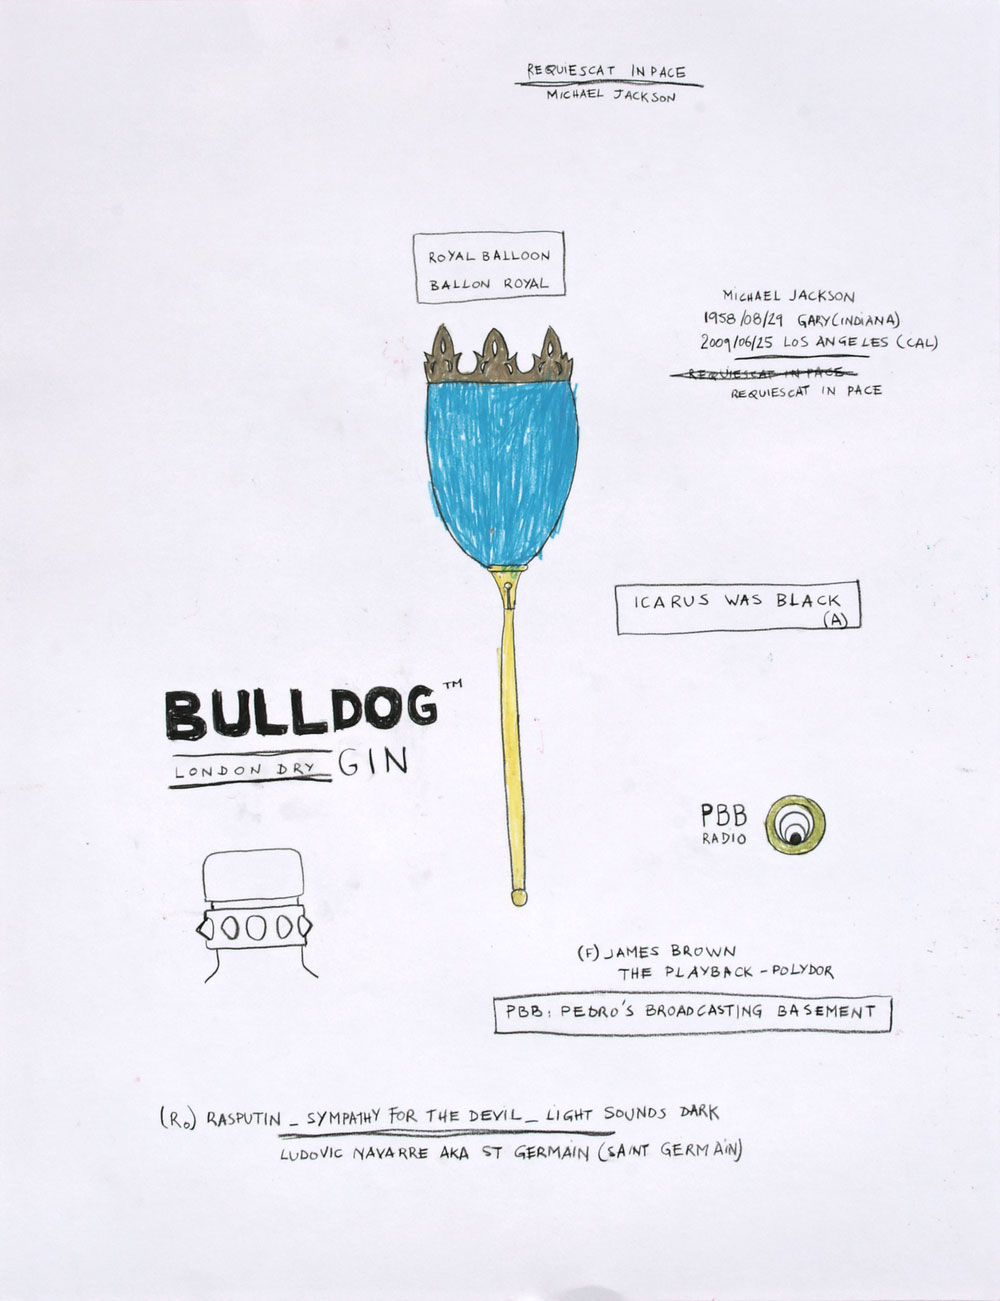 REQUIESCAT IN PACE
MICHAEL JACKSON
ROYAL BALLOON
BALLON ROYAL
MICHAEL JACKSON
1958/08/29 GARY (INDIANA)
2009/06/25 LOS ANGELES (CAL)
REQUIESCAT IN PACE
REQUIESCAT IN PACE
ICARUS WAS BLACK
(A)
BULLDOG™
LONDON DRY GIN
PBB
RADIO
(F) JAMES BROWN
THE PLAYBACK - POLYDOR
PBB: PEDRO'S BROADCASTING BASEMENT
(Ro) RASPUTIN _ SYMPATHY FOR THE DEVIL _ LIGHT SOUNDS DARK
LUDOVIC NAVARRE AKA ST GERMAIN (SAINT GERMAIN)